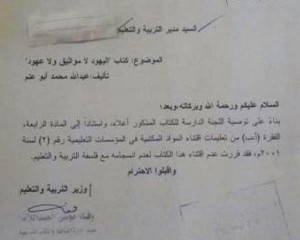 السيد مدير التربية والتعليم
الموضوع: كتاب "اليهود لا مواثيق ولا عهود"
تأليف:عبدالله محمد أبو علم
السلام عليكم ورحمة الله وبركاته،وبعد؛
بناءً على توصية اللجنة الدارسة للكتاب المذكور أعلاه، واستنادًا إلى المادة الرابعة،
الفقرة (أ،ب) من تعليمات اقتناء المواد المكتبية في المؤسسات التعليمية رقم (٢) لسنة
٢٠٠١م، فقد قررت عدم اقتناء هذا الكتاب لعدم انسجامه مع فلسفة التربية والتعليم.
واقبلوا الاحترام
وزير التربية والتعليم